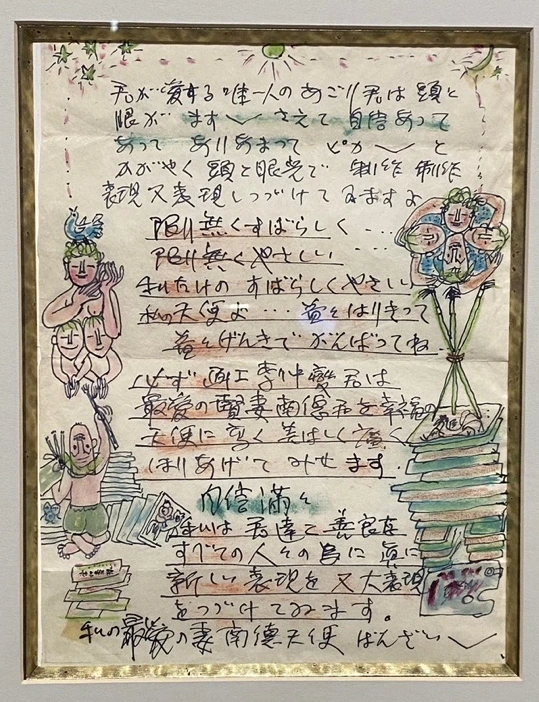 君が愛する唯一人のあごり君は頭と
眼が ます〱 さえて 自信あって
あって ありあまって ピカ〱 と
かがやく 頭と眼光で 制作 制作
表現又表現しつづけて ゐますよ
限り無くすばらしく・・・
限り無くやさしい
私だけの すばらしくやさしい
私の天使よ・・・益々はりきって
益々げんきで がんばってね
必ず 画工李仲燮君は
最後の賢妻南德君を幸福の
天使に高く美はしく廣く
ほりあげて みせます.
自信満々
私は 君達と善良な
すべての人々の為に 真に
新しい表現を 又大表現
をつづけてゐます。
私の最後の妻南德天使 ばんざい〱